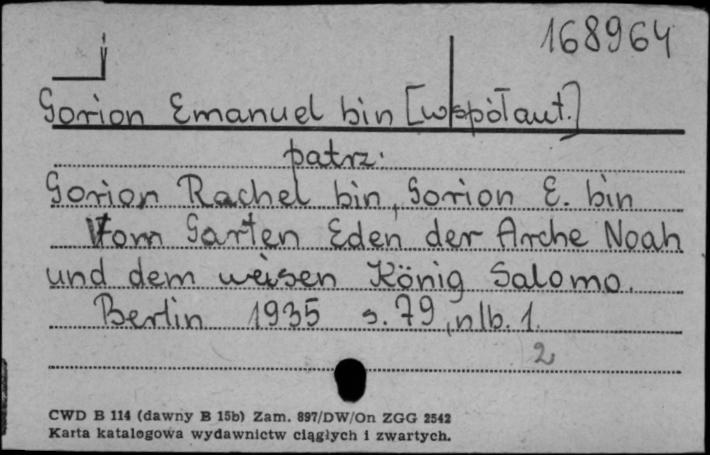 168964
j
Gorion Emanuel bin [współaut.]
patrz:
Gorion Rachel bin, Gorion E. bin
Vom Garten Eden der Arche Noah
und dem weisen König Salomo.
Berlin 1935 s. 79, nlb. 1.
2
CWD B 114 (dawny B 15b) Zam. 897/DW/On ZGG 2542
Karta katalogowa wydawnictw ciągłych i zwartych.